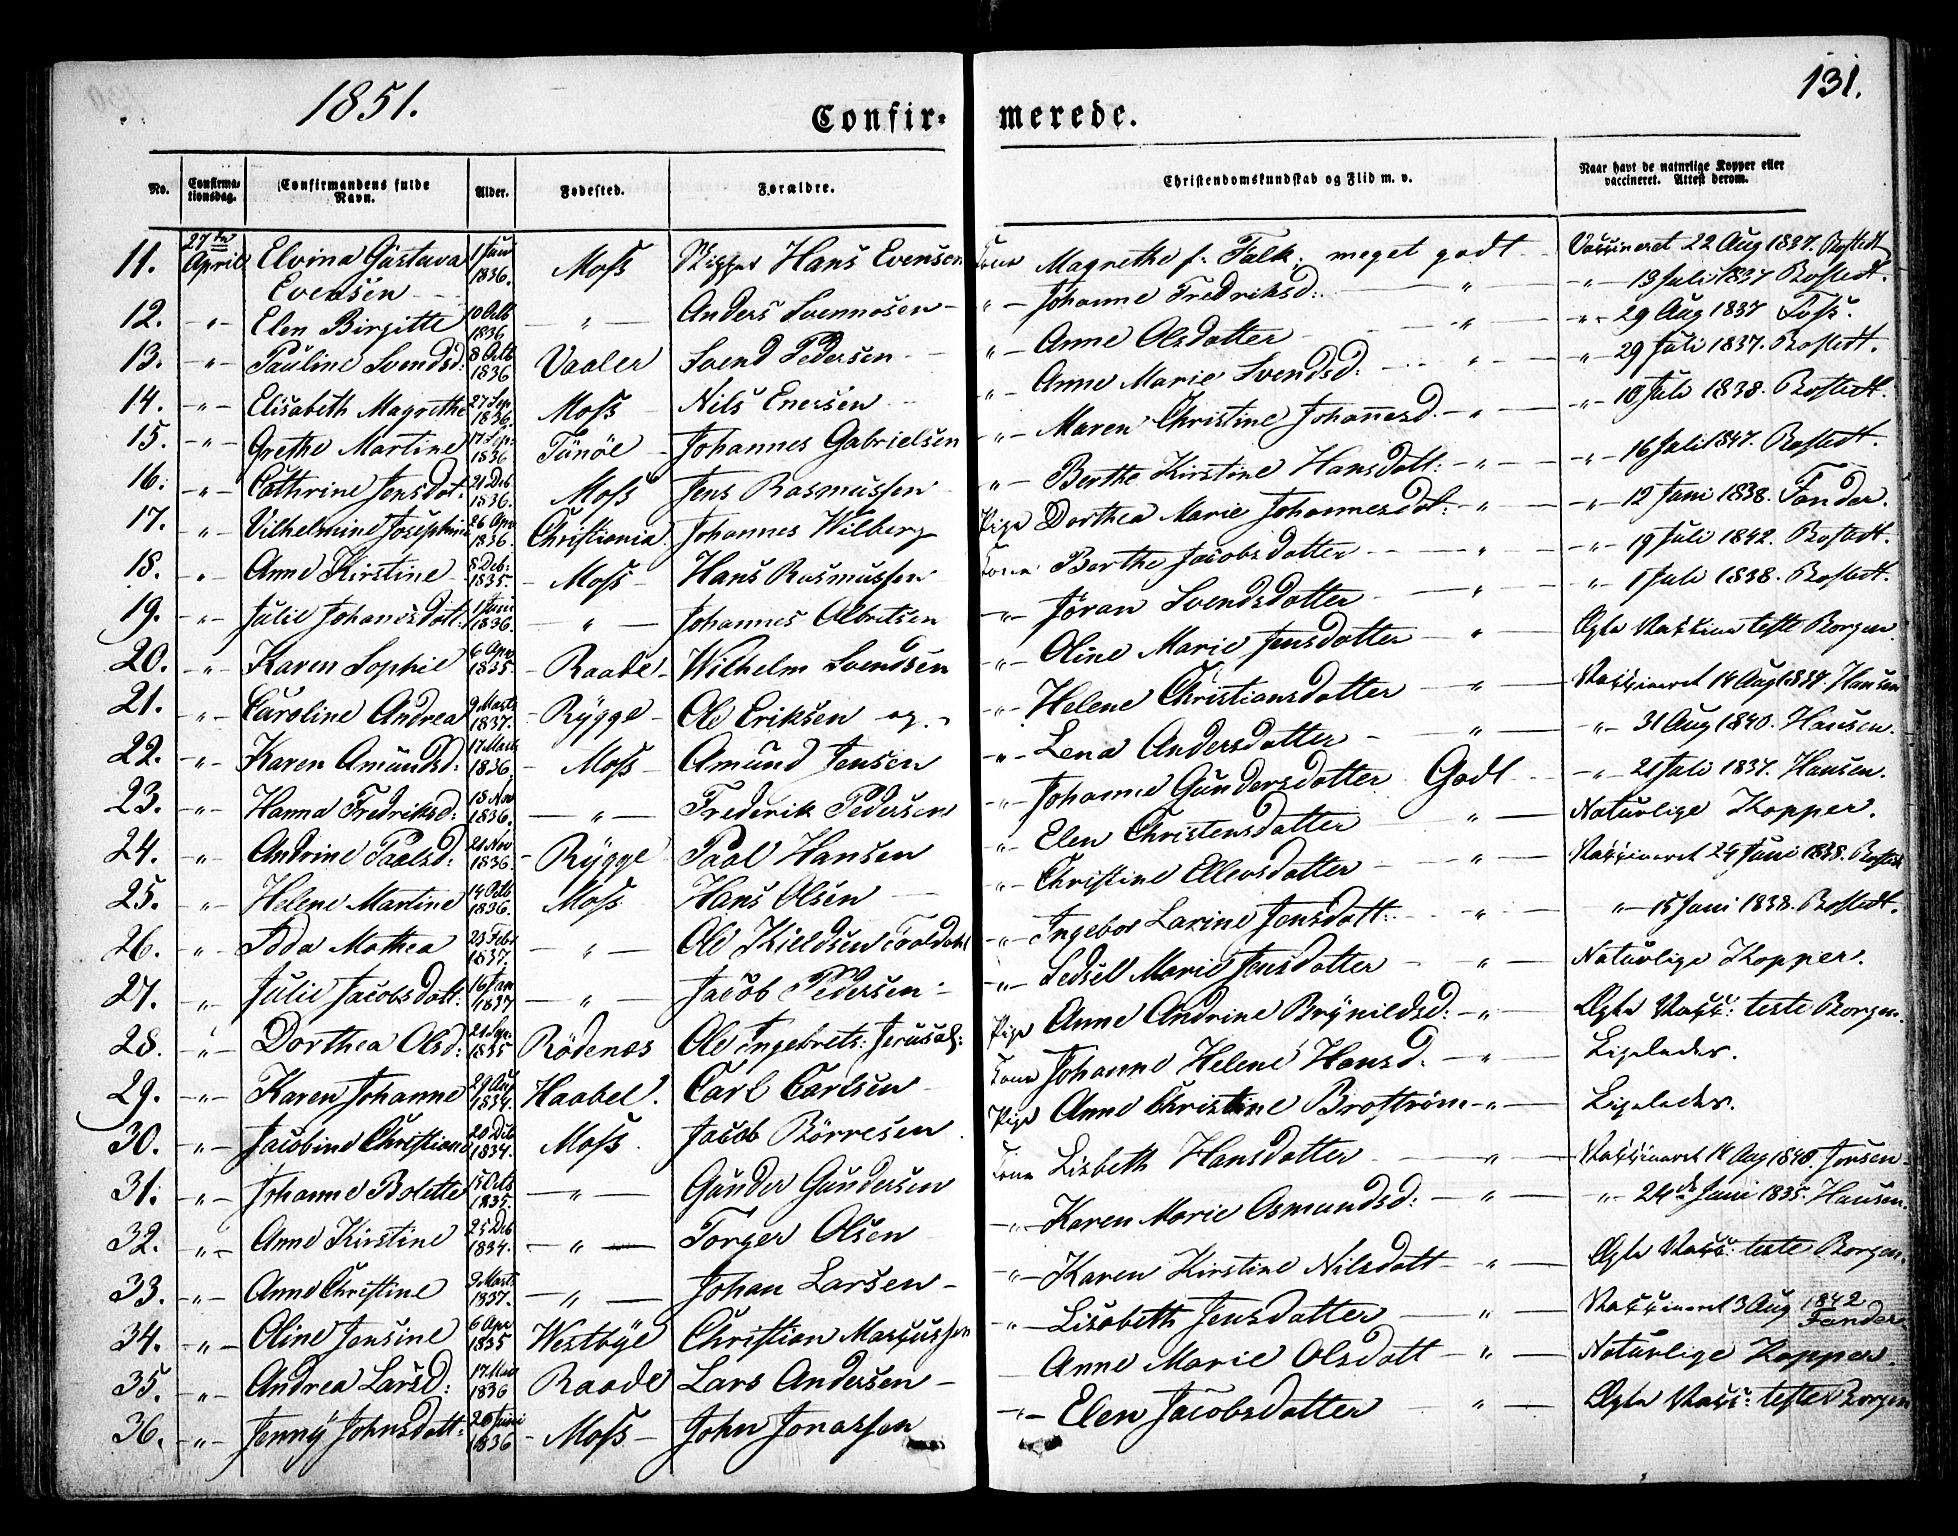 1851.
131.
Confir- merede.
No. Confirma-tionsdag. Confirmandens fulde Navn. Alder. Fødested. Forældre. Christendomskundskab og Flid m. v. Naar havt de naturlige Kopper eller vaccineret. Attest derom.
11. 27de April Elvina Gustava Evensen 1 Juni 1836. Moss Skipper Hans Evensen Kone Magrethe f. Falk. meget godt Vaccineret 22 Aug 1837. Rostedt
12. -"- Elen Birgitte 10 Octb 1836 -"- Anders Svennesen -"- Johanne Fredriksd: -"- -"- 13 Juli 1837 Rostedt.
13. -"- Pauline Svendsd: 8 Octb 1836 Vaaler Svend Pedersen -"- Anne Olsdatter -"- -"- 29 Aug 1837
14. -"- Elisabeth Magrethe 27 Sep 1836. Moss Nils Enersen -"- Anne Marie Svendsd: -"- -"- 29 Juli 1837. Rostedt.
15. -"- Grethe Martine 17 Sep 1836 Johannes Gabrielsen -"- Maren Christine Johannesd. -"- -"- 10 Juli 1838. Rostedt.
16. -"- Cathrine Jensdot: 21 Deb 1836. Moss Jens Rasmussen -"- Berthe Kirstine Hansdatt: -"- -"- 16 Juli 1847. Rostedt.
17. -"- Vilhelmine Josephine 26 Apr 1836. Christiania Johannes Wilberg Pige Dorthea Marie Johannesdot: -"- -"- 12 Juni 1838.
18. -"- Anne Kirstine 8 Deb: 1835. Moss Hans Rasmussen Kone Berthe Jacobsdatter -"- -"- 19 Juli 1842. Rostedt.
19. -"- Julie Johansdatt: 1 Juni 1836. -"- Johannes Albretsen -"- Jøran Svendsdatter -"- -"- 1 Juli 1838. Rostedt.
20. -"- Karen Sophie 6 Apr 1835. Raade Wilhelm Svendsen -"- Oline Marie Jensdatter -"- Ægte Vaccine teste Borgen.
21. -"- Caroline Andrea 9 Marts 1837. Rygge Ole Eriksen og -"- Helene Christiansdatter -"- Vaccineret 14 Aug 1837. Hansen
22. -"- Karen Amundsd: 17 Marts 1836. Moss Amund Jensen -"- Lena Andersdatter -"- -"- 31 Aug 1840. Hansen.
23. -"- Hanna Fredriksd: 18 Nov 1836. -"- Frederik Pedersen -"- Johanne Gundersdatter Godt -"- 21 Juli 1837. Hansen.
24. -"- Andrine Paalsd: 21 Nov 1836. Rygge Paal Hansen -"- Elen Christensdatter -"- Naturlige Kopper.
25. -"- Helene Martine 14 Octb 1836. Moss Hans Olsen -"- Christine Ellevsdatter -"- Vaccineret 24 Juni 1838. Rostedt
26. -"- Ida Mathea 23 Febr 1837. -"- Ole Kieldsen -"- Ingebor Larine Jensdatt: -"- -"- 15 Juni 1838. Rostedt.
27. -"- Julie Jacobsdatt: 16 Jan 1837 -"- Jacob Pedersen -"- Sedsel Marie Jensdatter -"- Naturlige Kopper.
28. -"- Dorthea Olsd: 21 Sep. 1835 Rødenæs Ole Ingebrets: Jerusal: Pige Anne Andrine Brynildsd: -"- Ægte Vacc: teste Borgen.
29. -"- Karen Johanne 29 Aug 1834. Haabel. Carl Carlsen Kone Johanne Helene Hansd. -"- Ligeledes.
30. -"- Jacobine Christiane 20 Deb 1834. Moss Jacob Børresen Pige Anne Christine Brostrøm -"- Ligeledes.
31. -"- Johanne Bolette 15 Octb 1835. -"- Gunder Gundersen Kone Lisbeth Hansdatter -"- Vaccineret 14 Aug 1840. Jensen
32. -"- Anne Kirstine 25 Deb 1834. -"- Torger Olsen -"- Karen Marie Asmundsd: -"- -"- 24de Juni 1835. Hansen.
33. -"- Anne Christine 9 Marts 1837. -"- Johan Larsen -"- Karen Kirstine Nilsdatt -"- Ægte Vacc: teste Borgen.
34. -"- Oline Jensine 6 Apr 1835 Westbye Christian Marcussen -"- Lisabeth Jensdatter -"- Vaccineret 3 Aug 1842
35. -"- Andrea Larsd: 17 Mai 1836 Raade Lars Andersen Anne Marie Olsdatt -"- Naturlige Kopper.
36. -"- Jenny Johnsdatt: 26 Juni 1836 Moss John Jonassen -"- Elen Jacobsdatter -"- Ægte Vacc: teste Borgen